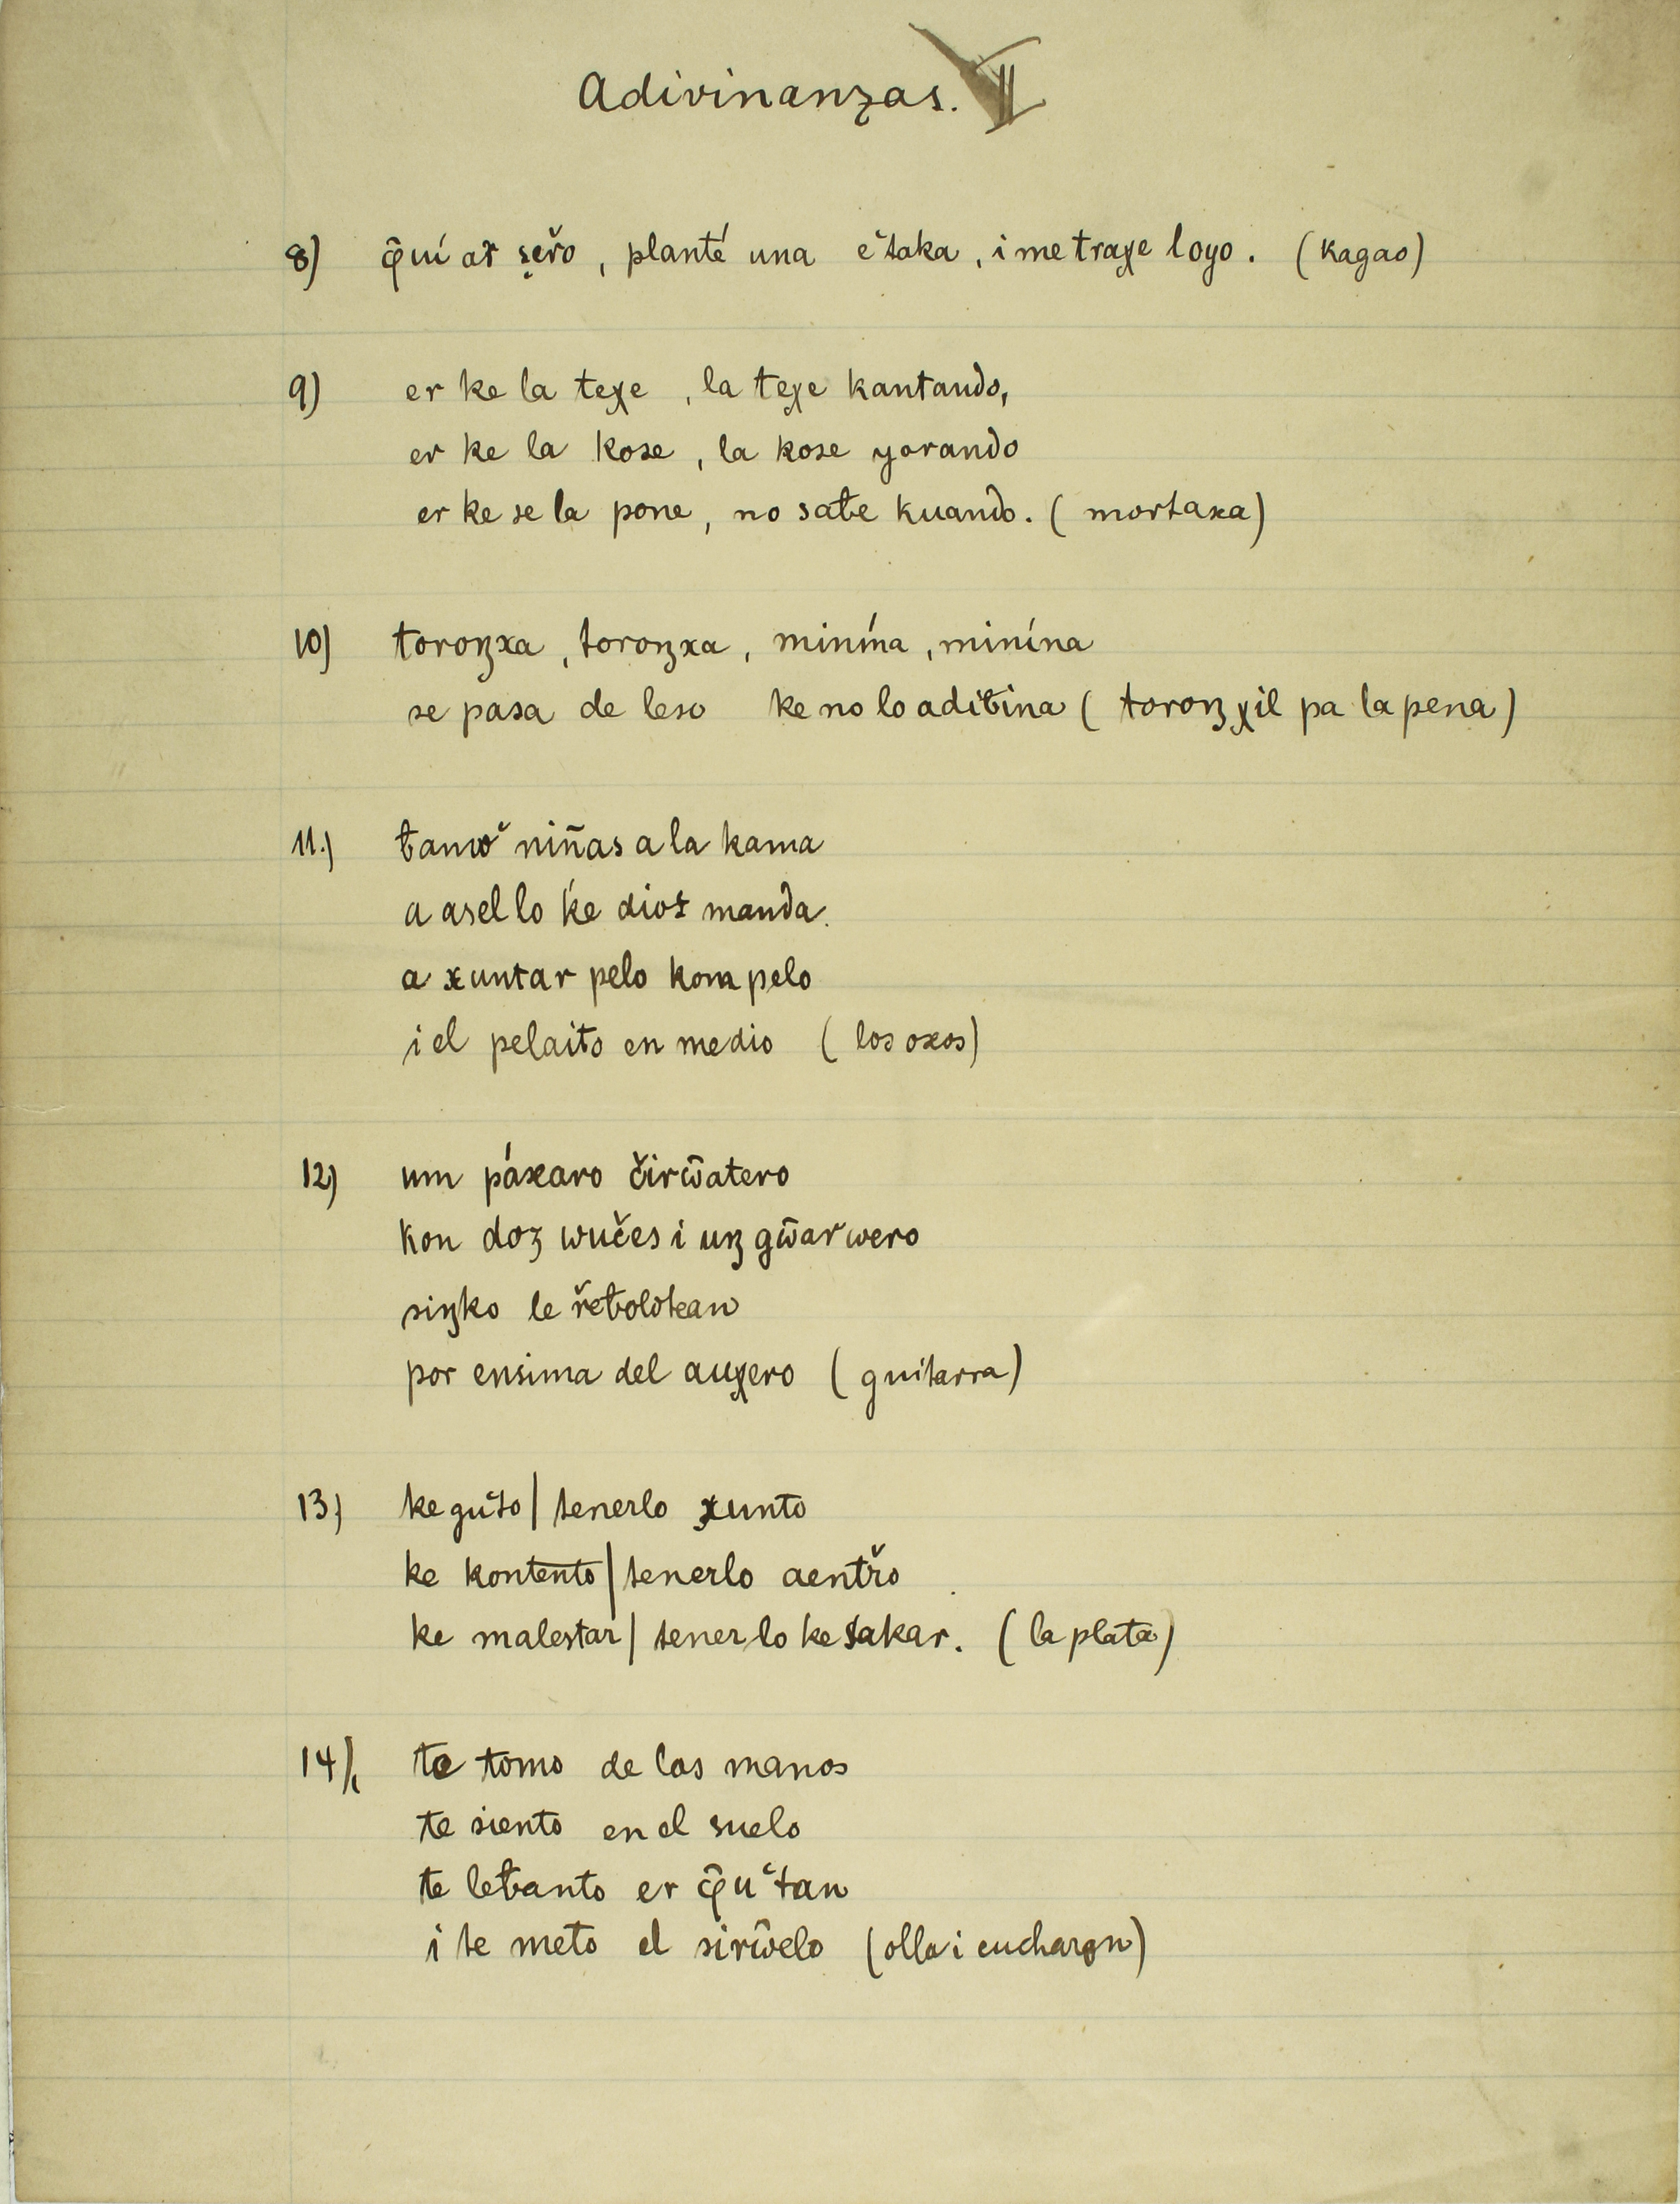 Adivinanzas. II
8) φ̂uí aš seřo, planté una eštaka, i me traχe loyo. (kagao)
9) er ke la teχe, la teχe kantando,
er ke la kose, la kose yorando
er ke se la pone, no saƀe kuando. (mortaxa)
10) toroŋxa, toroŋxa, minína, minína
se pasa de leso ke no lo adiƀina (toroŋχil pa la pena)
11.) ƀamoˇ niñas a la kama
a asel lo ke dioz manda.
a xuntar pelo kom pelo
i el pelaito en medio (los oxos)
12) um páxaro čirw̃atero
kon doz wučes i uŋ gw̃arwero
siŋko le řeƀolotean
por ensima del auχero (guitarra)
13) ke guˇto | tenerlo xunto
ke kontento | tenerlo aentřo
ke malestar | tenerlo ke sakar. (la plata)
14) te tomo de las manos
te siento en el suelo
te leƀanto er φ̂uˇtan
i te meto el sirw̃elo (olla i eucharon)